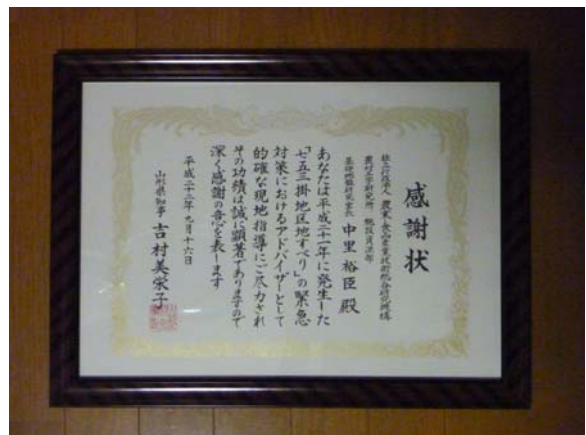 感謝状
独立行政法人 農業・食品産業技術総合研究機構
農村工学研究所 施設資源部
基礎地盤研究室長 中里裕臣 殿
あなたは平成二十一年に発生した
「七五三掛地区地すべり」の緊急
対策におけるアドバイザーとして
的確な現地指導にご尽力され
その功績は誠に顕著でありますので
深く感謝の意を表します
平成二十二年九月十六日
山形県知事 吉村美栄子